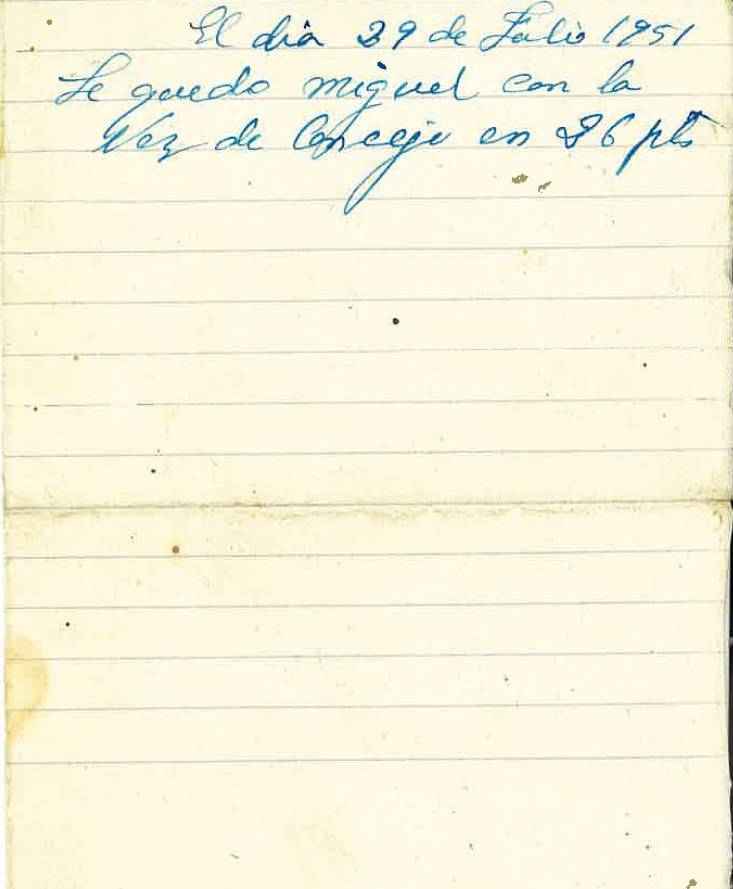 El dia 29 de Julio 1951
Se quedo miguel con la
Vez de Conceju en 26 pts